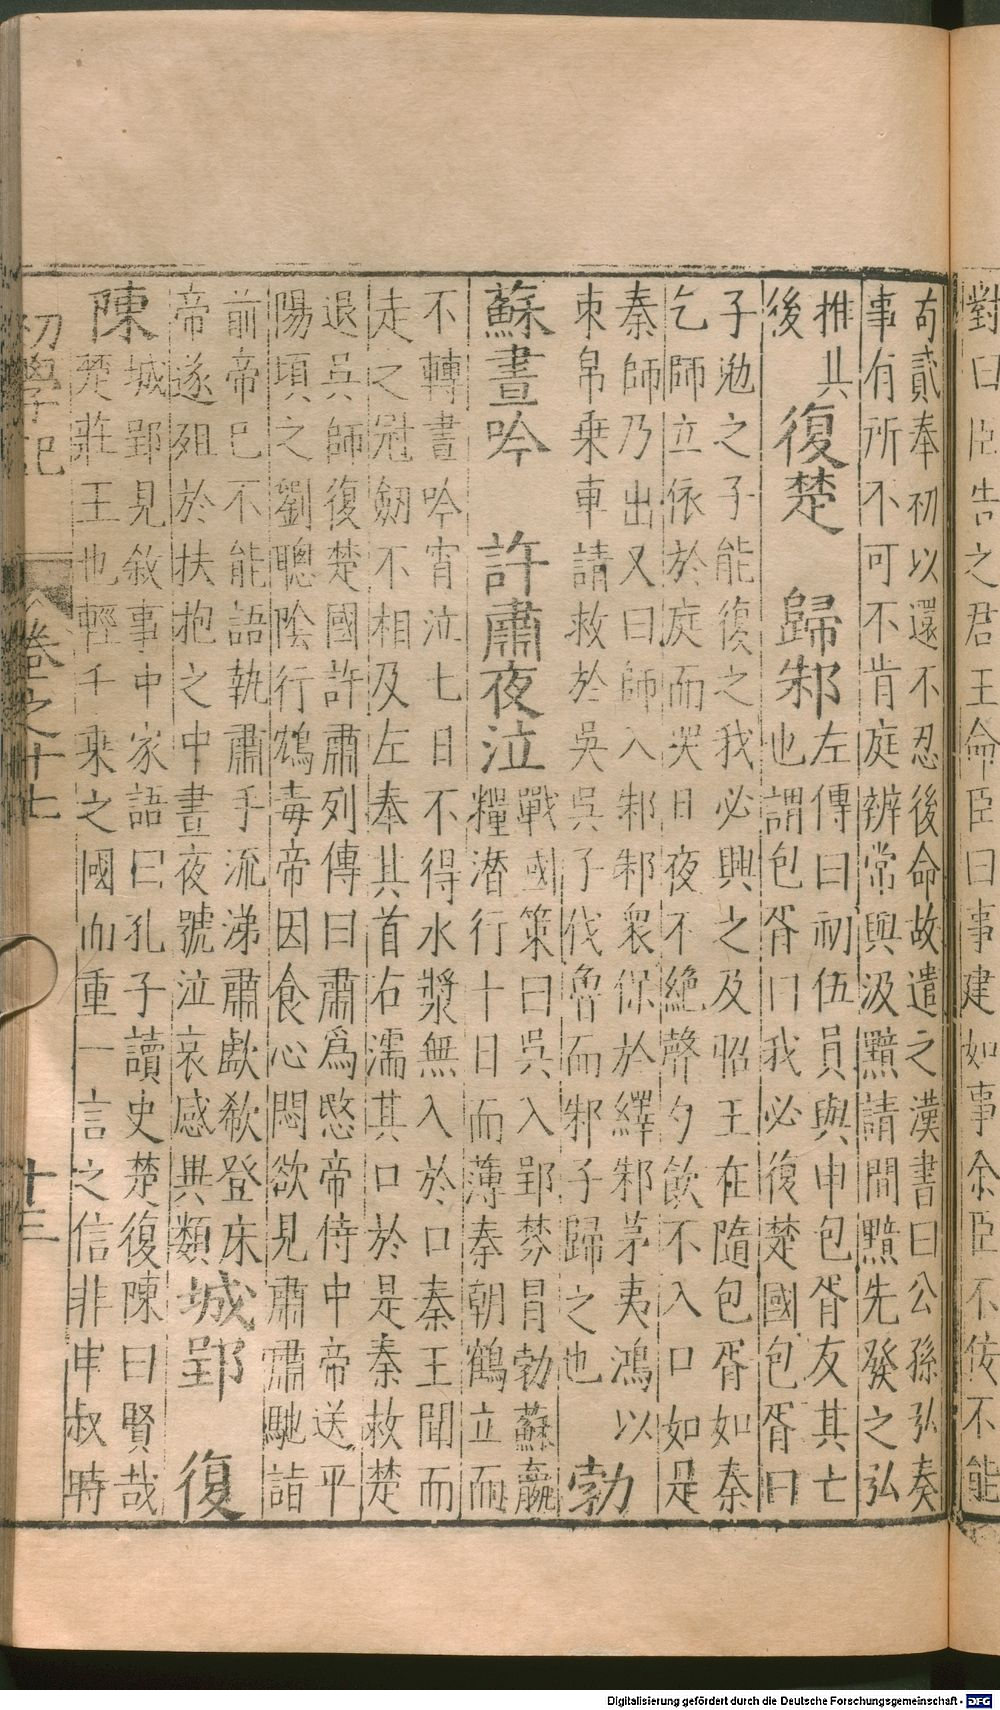 對曰臣告之君王命臣曰事建如事余臣不佞不能
茍貳奉初以還不忍後命故遣之漢書曰公孫弘奏
事有所不可不肯庭辨常與汲黯請間黯先發之弘
推其
後
復楚 歸邾
左傳曰初伍員與申包胥友其亡
也謂包胥曰我必復楚國包胥曰
子勉之子能復之我必興之及昭王在隨包胥如秦
乞師立依於庭而哭日夜不絕聲勺飲不入口如是
秦師乃出又曰師入邾邾衆保於繹邾茅夷鴻以
束帛乗車請救於吳吳子伐魯而邾子歸之也
勃
蘇晝吟 許肅夜泣
戰國策曰吳入郢棼冒勃蘇羸
糧潛行十日而薄秦朝鶴立而
不轉晝吟宵泣七日不得水漿無入於口秦王聞而
走之冠劒不相及左奉其首右濡其口於是秦救楚
退吳師復楚國許肅列傳曰肅爲愍帝侍中帝送平
陽頃之劉聰陰行鴆毒帝因食心悶欲見肅肅馳詣
前帝巳不能語執肅手流涕肅歔欷登床
帝遂殂於扶抱之中晝夜號泣哀感異類
城郢 復
陳
城郢見敘事中家語曰孔子讀史楚復陳曰賢哉
楚莊王也輕千乗之國而重一言之信非申叔時
初學記 卷之十七 十三
Digitalisierung gefördert durch die Deutsche Forschungsgemeinschaft - DFG